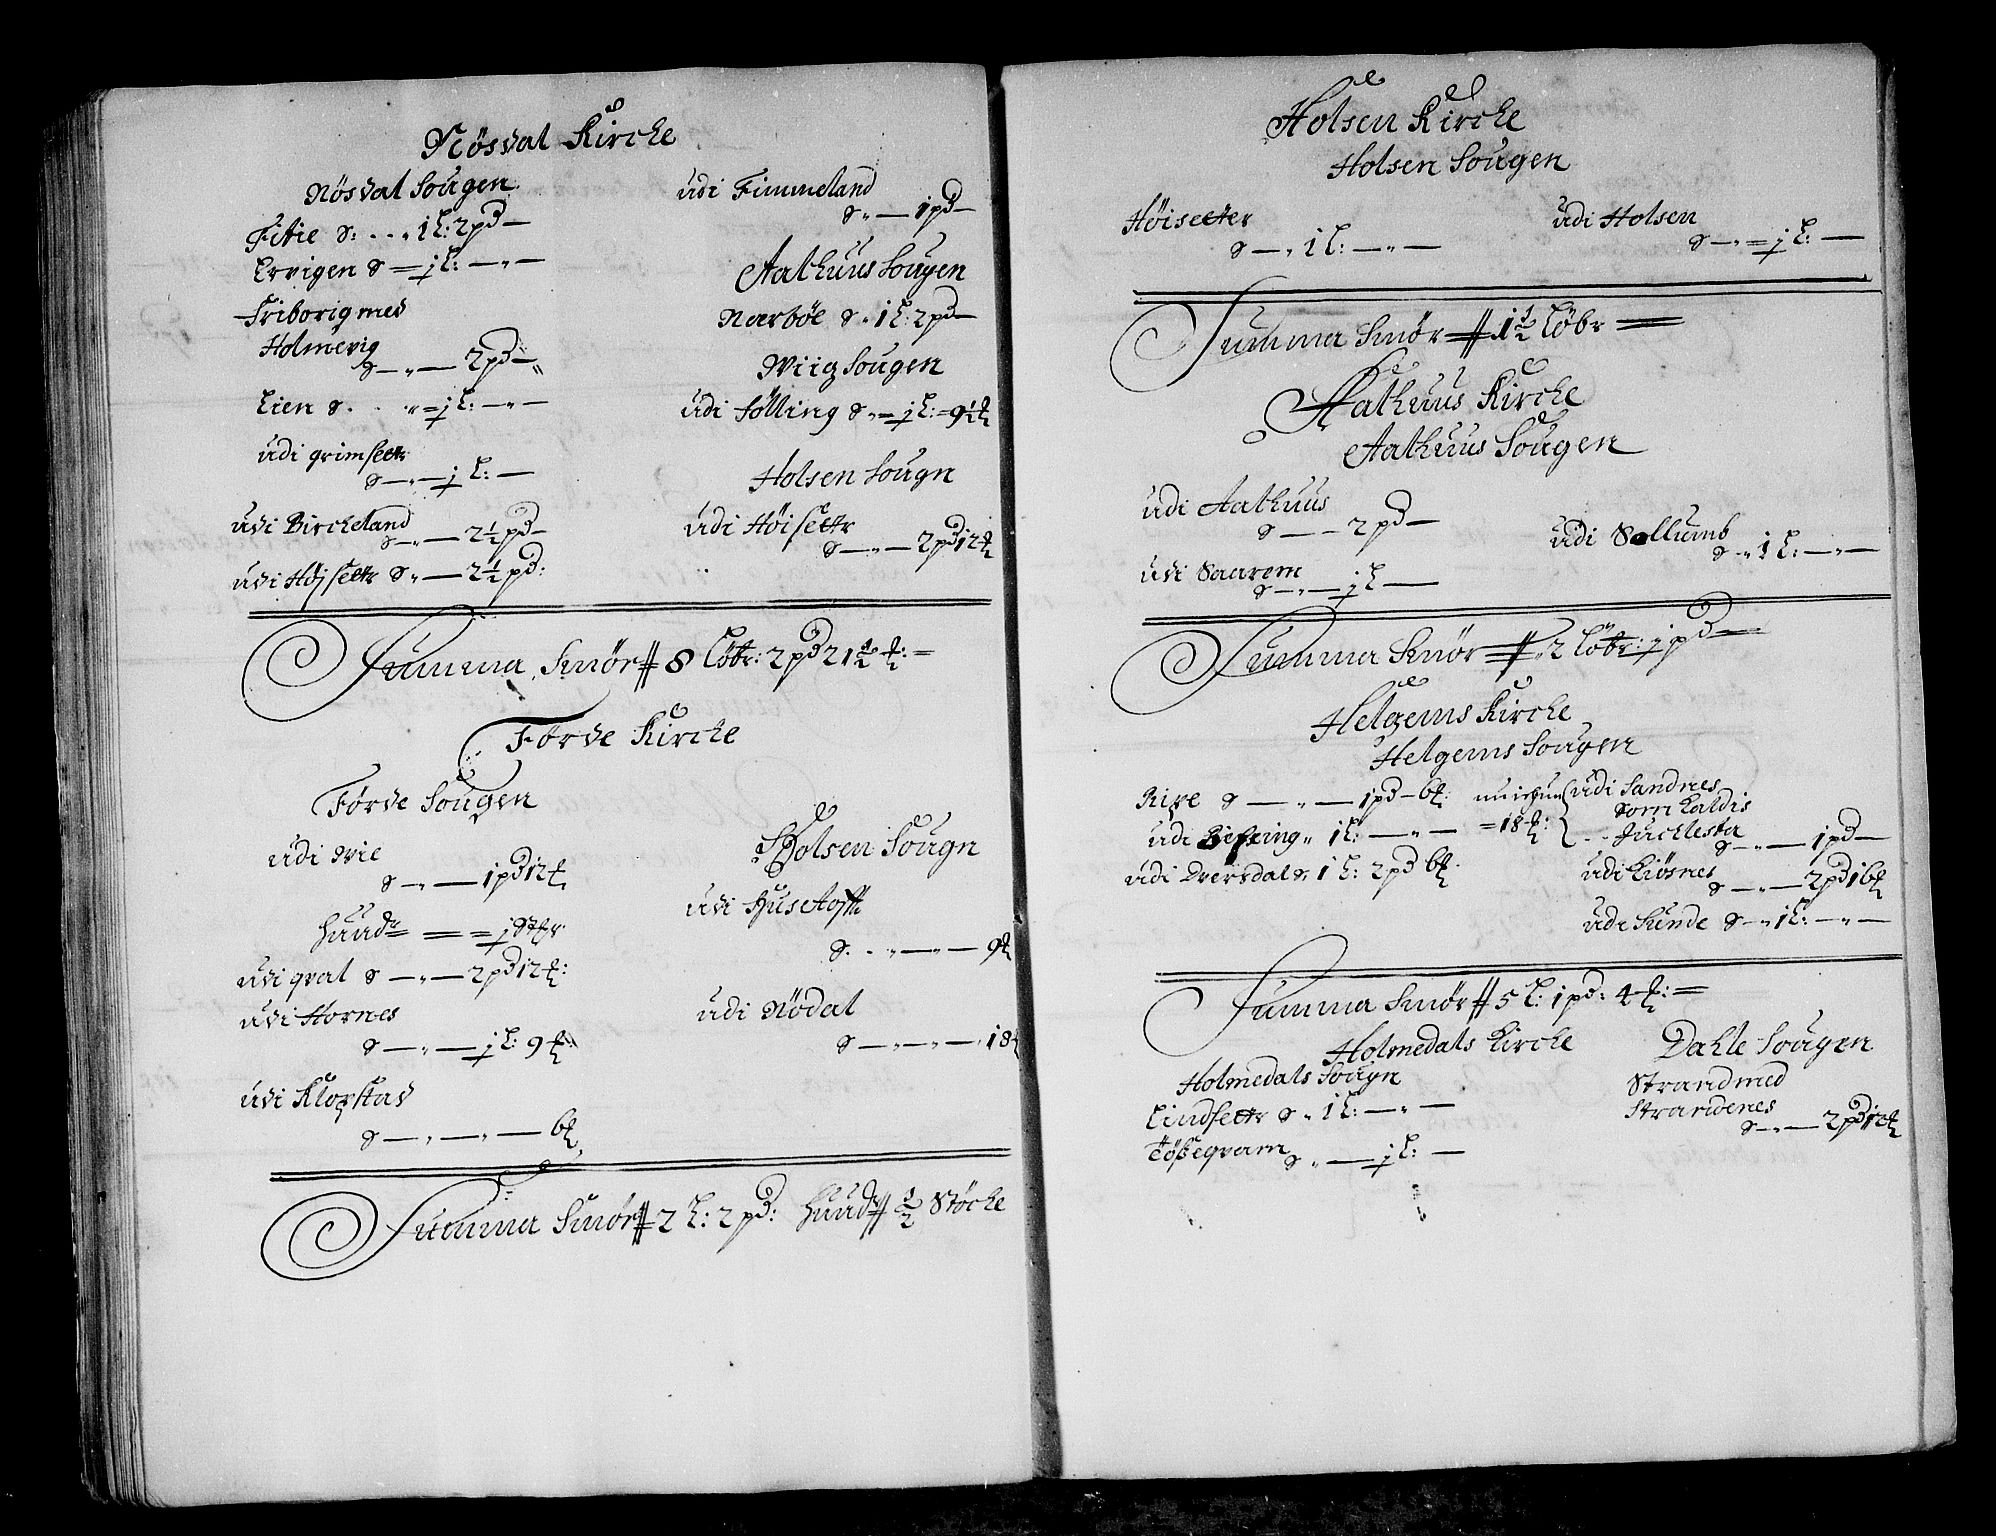 Nösdal Kirche
Nösdal Sougen
Fitie S: . . „ 1 L: 2 pd —
Ervigen S = j L: — „ —
Friborig med
Holmevig
S — „ — 2 pd —
Lien S. . . „ = j L: — „ —
udi grimsettr
S — „ — j L: —
udi Bircheland
S — „ — 2½ pd —
udi Høj settr S „ — 2½ pd:
udi Fimmeland
S „ — 1 pd —
Aathuus Sougen
Nærbøe S „ 1 L: 2 pd —
Wiig Sougen
udi Sölling S „ = j L: = 9½
Holsen Sougn
udi Höisettr
S — „ — 2 pd 12
Summa Smör 8 Löbr: 2 pd 21½ : =
Førde Kirche
Førde Sougen
udi Wie
S — „ — 1 pd 12
huudr = = = j
udi qval S — „ — 2 pd 12 :
udi Hornes
S — „ — j L: 9
udi Klopstad
S — „ — „ — 6
Holsen Sougn
udi Husetofft
S. . „ — „ — 9
udi Nödal
S — „ — „ — „ 18
Summa Smör 2 L: 2 pd: huudr ½ Støche
Holsen Kirche
Holsen Sougen
Høisetter
S — „ 1 L: — „ —
udi Holsen
S — „ = j L: —
Summa Smör 1½ Löbr =
Aathuus Kirche
Aathuus Sougen
udi Aathuus
S — – 2 pd —
udi Saarem
S — „ — j L —
udi Sollumb
S — „ 1 L: — „ —
Summa Smör „ 2 Löbr: j pd —
Helgems Kirche
Helgems Sougen
Ripe S — „ — 1 pd — 6 :
udi „ 1 L: — „ — = 18 :
udi Dversdal S: 1 L: 2 pd 6 :
udi Sandnes
Som Kaldis
Juchlesta
S — „ — 1 pd —
udi Kiøsnes
S — „ — 2 pd 16
udi Sunde S — „ 1 L: — „ —
Summa Smör 5 L: 1 pd: 4 : =
Holmedals Kirche
Holmedals Sougn
Lindsettr S „ 1 L: — „ —
Tößeqvam S „ — j L: —
Dahle Sougen
Strand med
Strandenes
S — „ — 2 pd 12